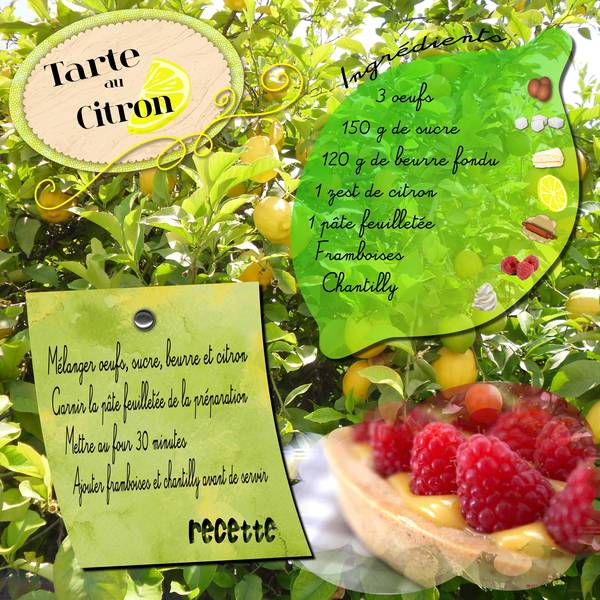 Tarte
au
Citron
Ingrédients
3 oeufs
150 g de sucre
120 g de beurre fondu
1 zest de citron
1 pâte feuilletée
Framboises
Chantilly
Mélanger oeufs, sucre, beurre et citron
Garnir la pâte feuilletée de la préparation
Mettre au four 30 minutes
Ajouter framboises et chantilly avant de servir
recette